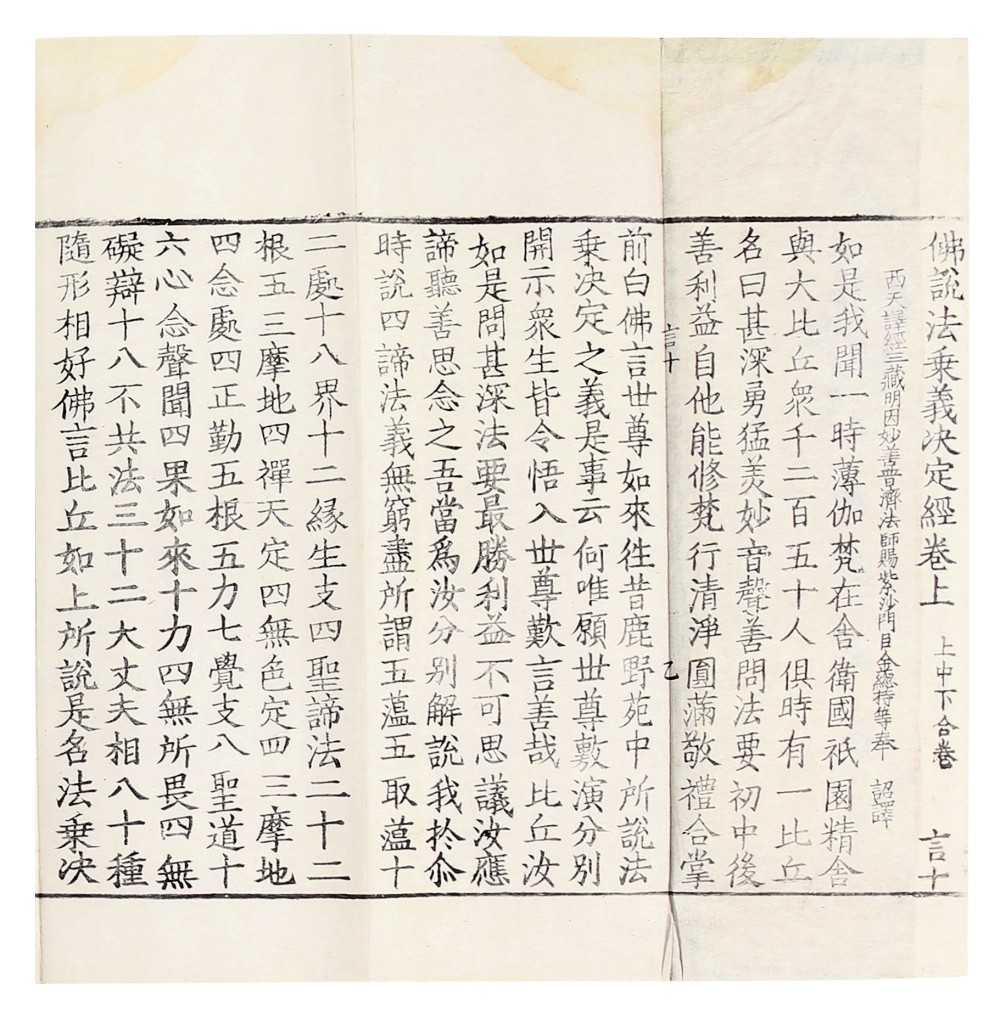 佛說法乘義決定經卷上 上中下合卷 言十
西天譯經三藏明因妙善普濟法師賜紫沙門臣金總持等奉 詔譯
如是我聞一時薄伽梵在舍衛國祇園精舍
與大比丘衆千二百五十人俱時有一比丘
名曰甚深勇猛美妙音聲善問法要初中後
善利益自他能修梵行清淨圓滿敬禮合掌
言十 乙
前白佛言世尊如來徃昔鹿野苑中所說法
乘決定之義是事云何唯願世尊敷演分別
開示衆生皆令悟入世尊歎言善哉比丘汝
如是問甚深法要最勝利益不可思議汝應
諦聽善思念之吾當爲汝分别解說我扵尒
時說四諦法義無窮盡所謂五蕰五取蕰十
二處十八界十二緣生支四聖諦法二十二
根五三摩地四禪天定四無色定四三摩地
四念處四正勤五根五力七覺支八聖道十
六心念聲聞四果如來十力四無所畏四無
礙辯十八不共法三十二大丈夫相八十種
隨形相好佛言比丘如上所說是名法乗決